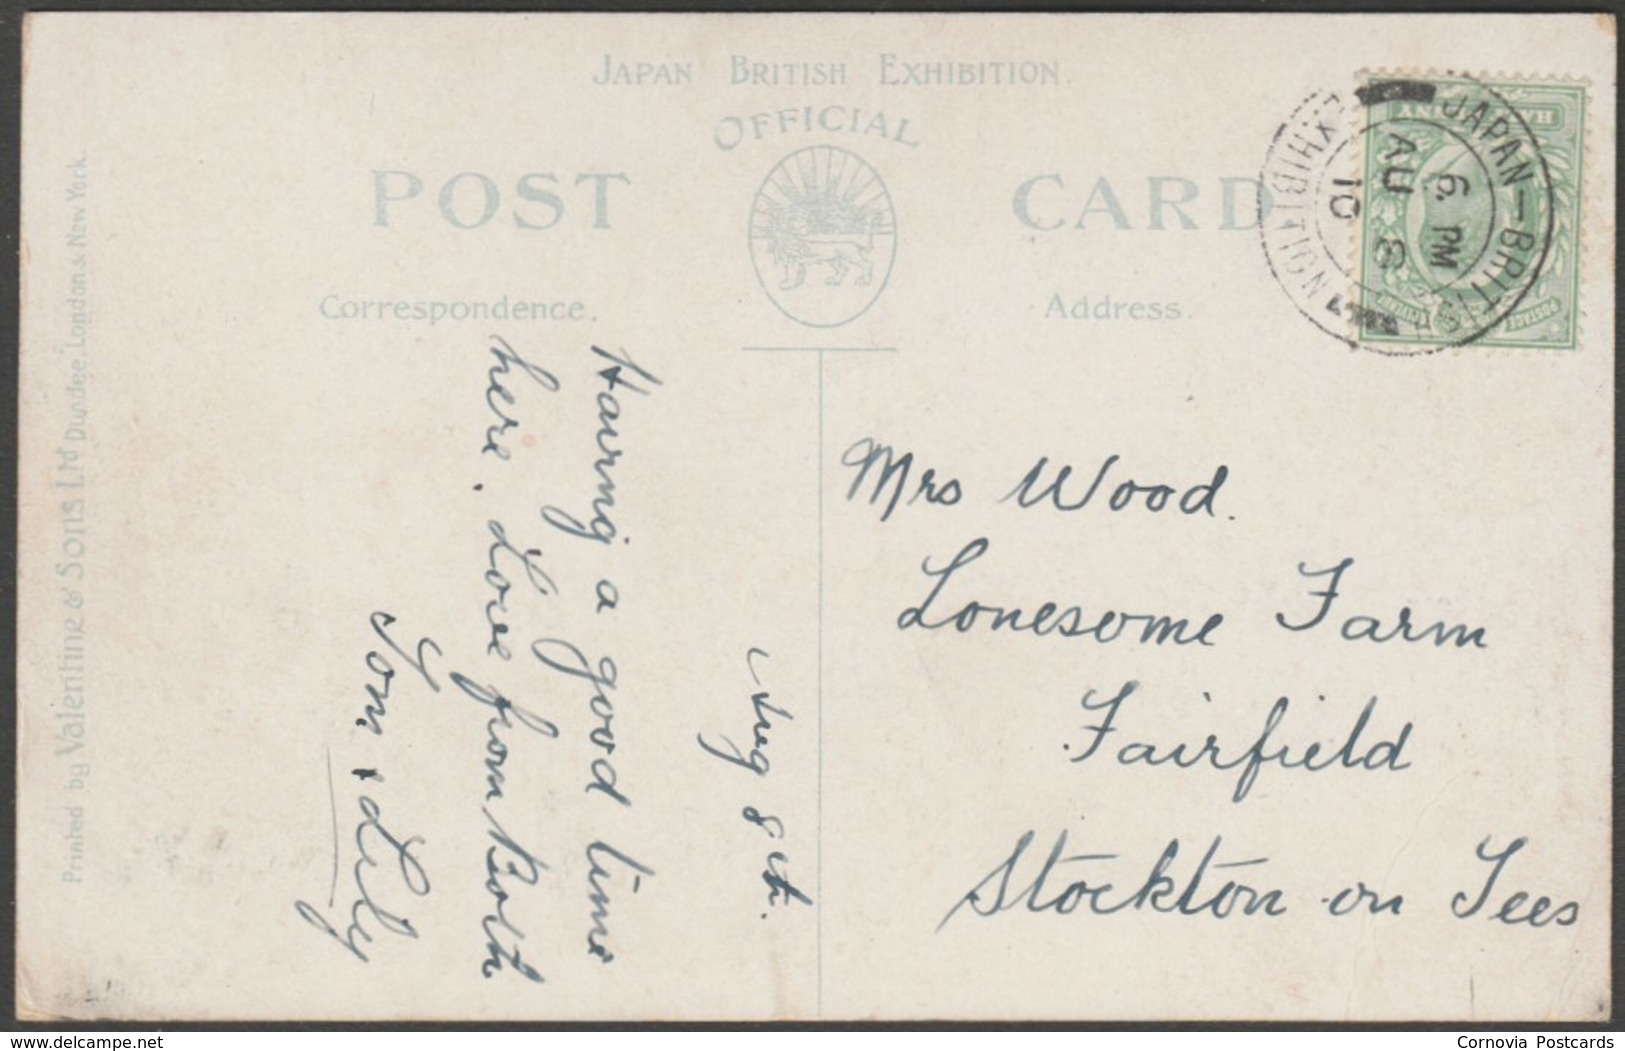 JAPAN BRITISH EXHIBITION.
OFFICIAL
POST CARD
Correspondence.
Address.
JAPAN-BRITISH
EXHIBITION
6. PM
AU 8
10
Printed by Valentine & Sons Ltd Dundee, London & New York.
Aug 8th.
Having a good time
here. Love from Both
Tom & Lily
Mrs Wood.
Lonesome Farm
Fairfield
Stockton on Tees
delcampe.net
Cornovia Postcards